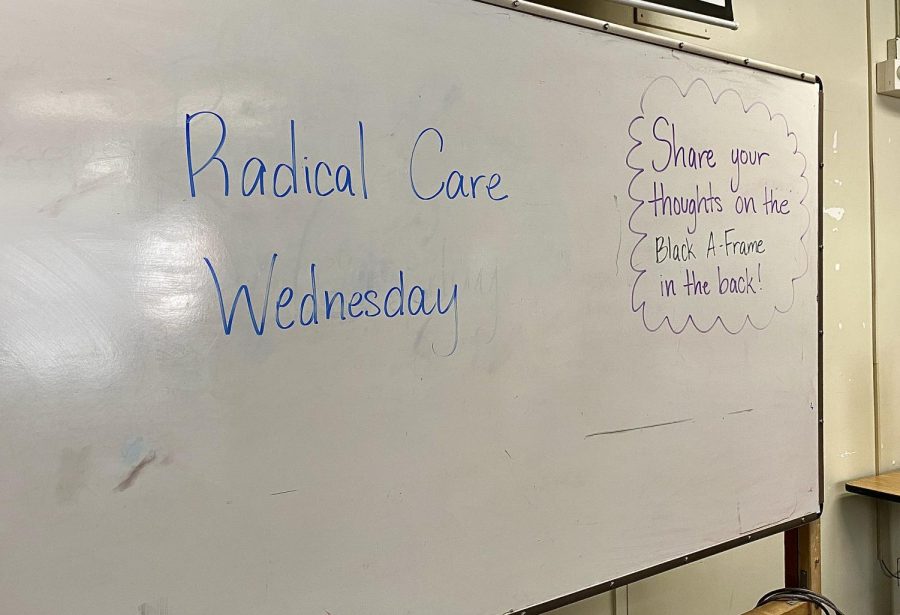 Radical Care
Wednesday
Share your
thoughts on the
Black A-Frame
in the back!